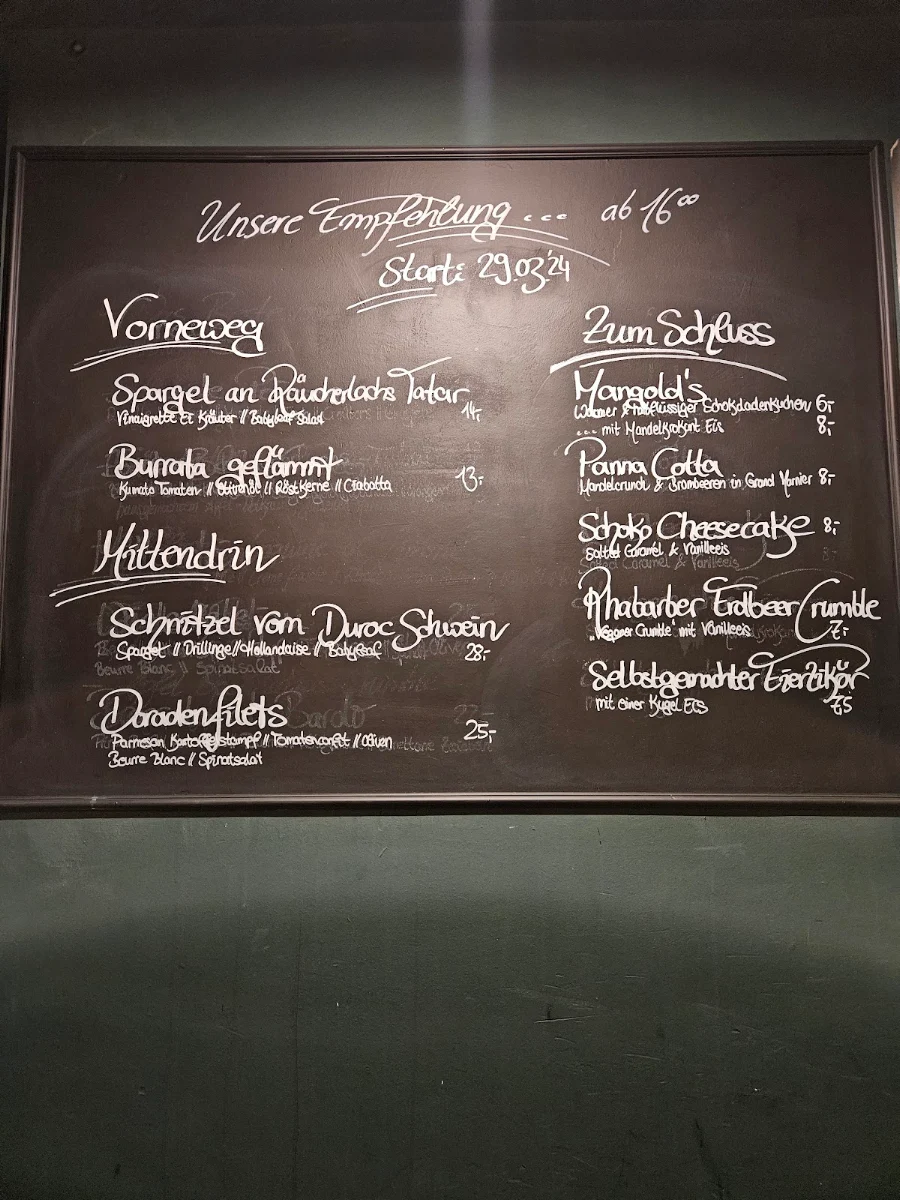 Unsere Empfehlung ... ab 16⁰⁰
Start: 29.03.'24
Vorneweg
Spargel an Räucherlachs Tatar
Vinaigrette Ei Kräuter // Babyleaf Salat 14,-
Burrata geflämmt
Kumato Tomaten // Olivenöl // Röst Kerne // Ciabatta 13,-
Mittendrin
Schnitzel vom Duroc Schwein
Spargel // Drillinge // Hollandaise // Babyleaf 28,-
Doradenfilets
Parmesan Kartoffelstampf // Tomatenconfit // Oliven 25,-
Beurre Blanc // Spinatsalat
Zum Schluss
Mangold's
Warmer & halbflüssiger Schokoladenkuchen 6,-
... mit Mandelkrokant Eis 8,-
Panna Cotta
Mandelcrunch & Brombeeren in Grand Marnier 8,-
Schoko Cheesecake 8,-
Salted Caramel & Vanilleeis
Rhabarber Erdbeer Crumble
"Veganer Crumble" mit Vanilleeis 7,-
Selbstgemachter Eierlikör
mit einer Kugel Eis 7,5